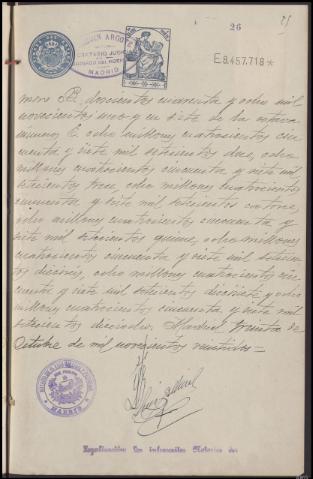 26
E8.457.718*
MADRID
mero B. doscientos cuarenta y ocho mil
novecientos uno y en siete de la octava
número E ocho millones cuatrocientos cin
cuenta y siete mil setecientos doce, ocho
millones cuatrocientos cincuenta y siete mil
setecientos trece, ocho millones cuatrocientos
cincuenta y siete mil setecientos catorce,
ocho millones cuatrocientos cincuenta y
siete mil setecientos quince, ocho millones
cuatrocientos cincuenta y siete mil setecien
tos dieciseis, ocho millones cuatrocientos cin
cuenta y siete mil setecientos diecisiete y ocho
millones cuatrocientos cincuenta y siete mil
setecientos dieciocho. Madrid treinta de
Octubre de mil novecientos veintidos=
MADRID
Legalización los infrascritos Notarios del